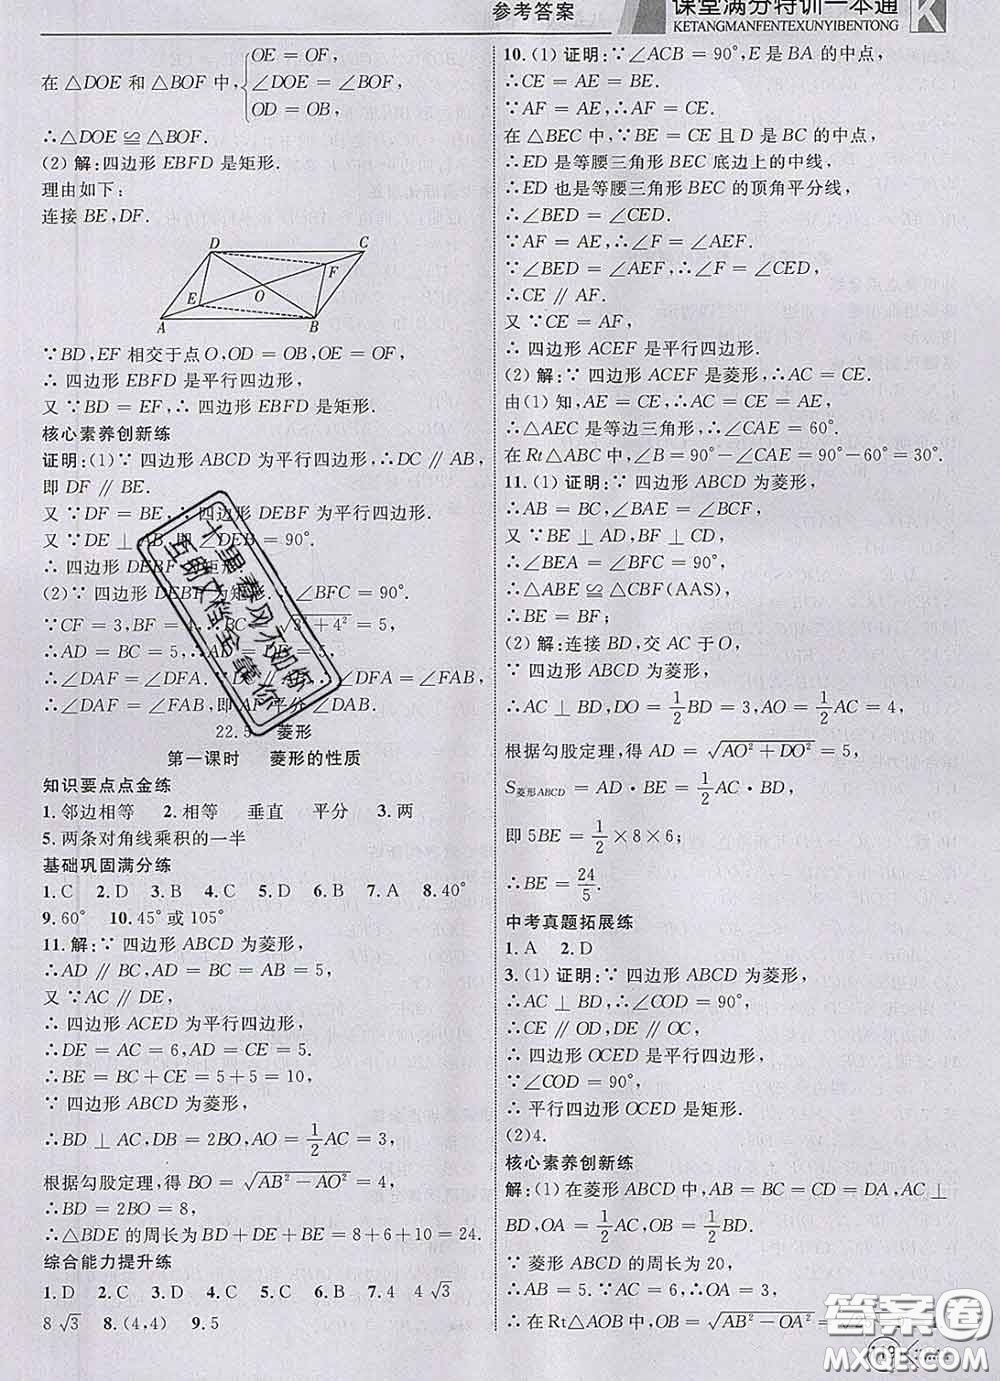 参考答案
课堂满分特训一本通
KETANGMANFENTEXUNYIBENTONG
K
在△DOE 和△BOF 中,{OE = OF, ∠DOE = ∠BOF, OD = OB,
∴△DOE ≌ △BOF.
(2) 解:四边形 EBFD 是矩形.
理由如下:
连接 BE,DF.
D C
F
E O
A B
∵BD,EF 相交于点 O,OD = OB,OE = OF,
∴ 四边形 EBFD 是平行四边形,
又 ∵BD = EF,∴ 四边形 EBFD 是矩形.
核心素养创新练
证明:(1)∵ 四边形 ABCD 为平行四边形,∴DC ∥ AB,
即 DF ∥ BE.
又 ∵DF = BE,∴ 四边形 DEBF 为平行四边形.
又 ∵DE ⊥ AB,即 ∠DEB = 90°,
∴ 四边形 DEBF 是矩形.
(2)∵ 四边形 DEBF 为矩形,∴∠BFC = 90°.
∵CF = 3,BF = 4,∴BC = √(3²+4²) = 5,
∴AD = BC = 5,∴AD = DF = 5,
∴∠DAF = ∠DFA.∵DC ∥ AB,∴∠DFA = ∠FAB,
∴∠DAF = ∠FAB,即 AF 平分 ∠DAB.
22.5 菱形
第一课时 菱形的性质
知识要点点金练
1.邻边相等 2.相等 垂直 平分 3.两
5.两条对角线乘积的一半
基础巩固满分练
1.C 2.D 3.B 4.C 5.D 6.B 7.A 8.40°
9.60° 10.45°或105°
11.解:∵ 四边形 ABCD 为菱形,
∴AD ∥ BC,AD = BC = AB = 5,
又 ∵AC ∥ DE,
∴ 四边形 ACED 为平行四边形,
∴DE = AC = 6,AD = CE = 5,
∴BE = BC + CE = 5 + 5 = 10,
∵ 四边形 ABCD 为菱形,
∴BD ⊥ AC,DB = 2BO,AO = 1/2 AC = 3,
根据勾股定理,得 BO = √(AB² − AO²) = 4,
∴BD = 2BO = 8,
∴△BDE 的周长为 BD + DE + BE = 8 + 6 + 10 = 24.
综合能力提升练
1.D 2.C 3.D 4.D 5.C 6.C 7.4 4√3
8√3 8.(4,4) 9.5
10.(1) 证明:∵∠ACB = 90°,E 是 BA 的中点,
∴CE = AE = BE.
∵AF = AE,∴AF = CE.
在 △BEC 中,∵BE = CE 且 D 是 BC 的中点,
∴ED 是等腰三角形 BEC 底边上的中线,
∴ED 也是等腰三角形 BEC 的顶角平分线,
∴∠BED = ∠CED.
∵AF = AE,∴∠F = ∠AEF.
∵∠BED = ∠AEF,∴∠F = ∠CED,
∴CE ∥ AF.
又 ∵CE = AF,
∴ 四边形 ACEF 是平行四边形.
(2) 解:∵ 四边形 ACEF 是菱形,∴AC = CE.
由(1) 知,AE = CE,∴AC = CE = AE,
∴△AEC 是等边三角形,∴∠CAE = 60°.
在 Rt△ABC 中,∠B = 90°−∠CAE = 90°−60° = 30°.
11.(1) 证明:∵ 四边形 ABCD 为菱形,
∴AB = BC,∠BAE = ∠BCF,
又 ∵BE ⊥ AD,BF ⊥ CD,
∴∠AEB = ∠CFB = 90°,
∴△ABE ≌ △CBF(AAS),
∴BE = BF;
(2) 解:连接 BD,交 AC 于 O,
∵ 四边形 ABCD 为菱形,
∴AC ⊥ BD,DO = 1/2 BD = 3,AO = 1/2 AC = 4,
根据勾股定理,得 AD = √(AO² + DO²) = 5,
S菱形ABCD = AD · BE = 1/2 AC · BD,
即 5BE = 1/2 × 8 × 6;
∴BE = 24/5.
中考真题拓展练
1.A 2.D
3.(1) 证明:∵ 四边形 ABCD 为菱形,
∴AC ⊥ BD,∴∠COD = 90°,
∵CE ∥ OD,DE ∥ OC,
∴ 四边形 OCED 是平行四边形,
∵∠COD = 90°,
∴ 平行四边形 OCED 是矩形.
(2)4.
核心素养创新练
解:(1) 在菱形 ABCD 中,AB = BC = CD = DA,AC ⊥
BD,OA = 1/2 AC,OB = 1/2 BD.
∵ 菱形 ABCD 的周长为 20,
∴AB = 5.∵AC = 6,∴OA = 3,
∴在 Rt△AOB 中,OB = √(AB² − OA²) =
十里春风不如你
互助文档全靠你
答案圈
MXQE.COM